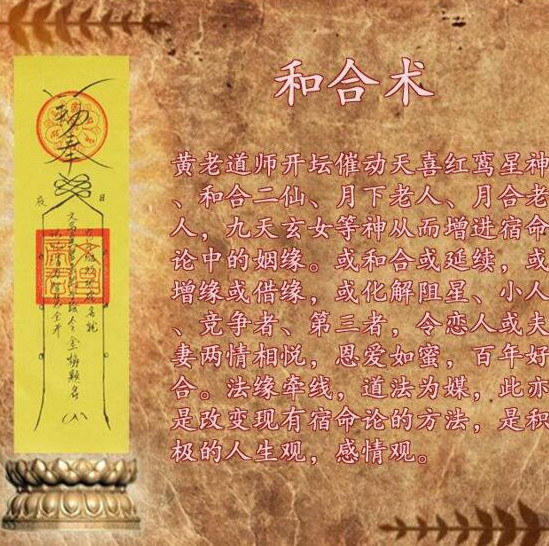 和合术
黄老道师开坛催动天喜红鸾星神
、和合二仙、月下老人、月合老
人，九天玄女等神从而增进宿命
论中的姻缘。或和合或延续，或
增缘或借缘，或化解阻星、小人
、竞争者、第三者，令恋人或夫
妻两情相悦，恩爱如蜜，百年好
合。法缘牵线，道法为媒，此亦
是改变现有宿命论的方法，是积
极的人生观，感情观。
敕奉
日
夜